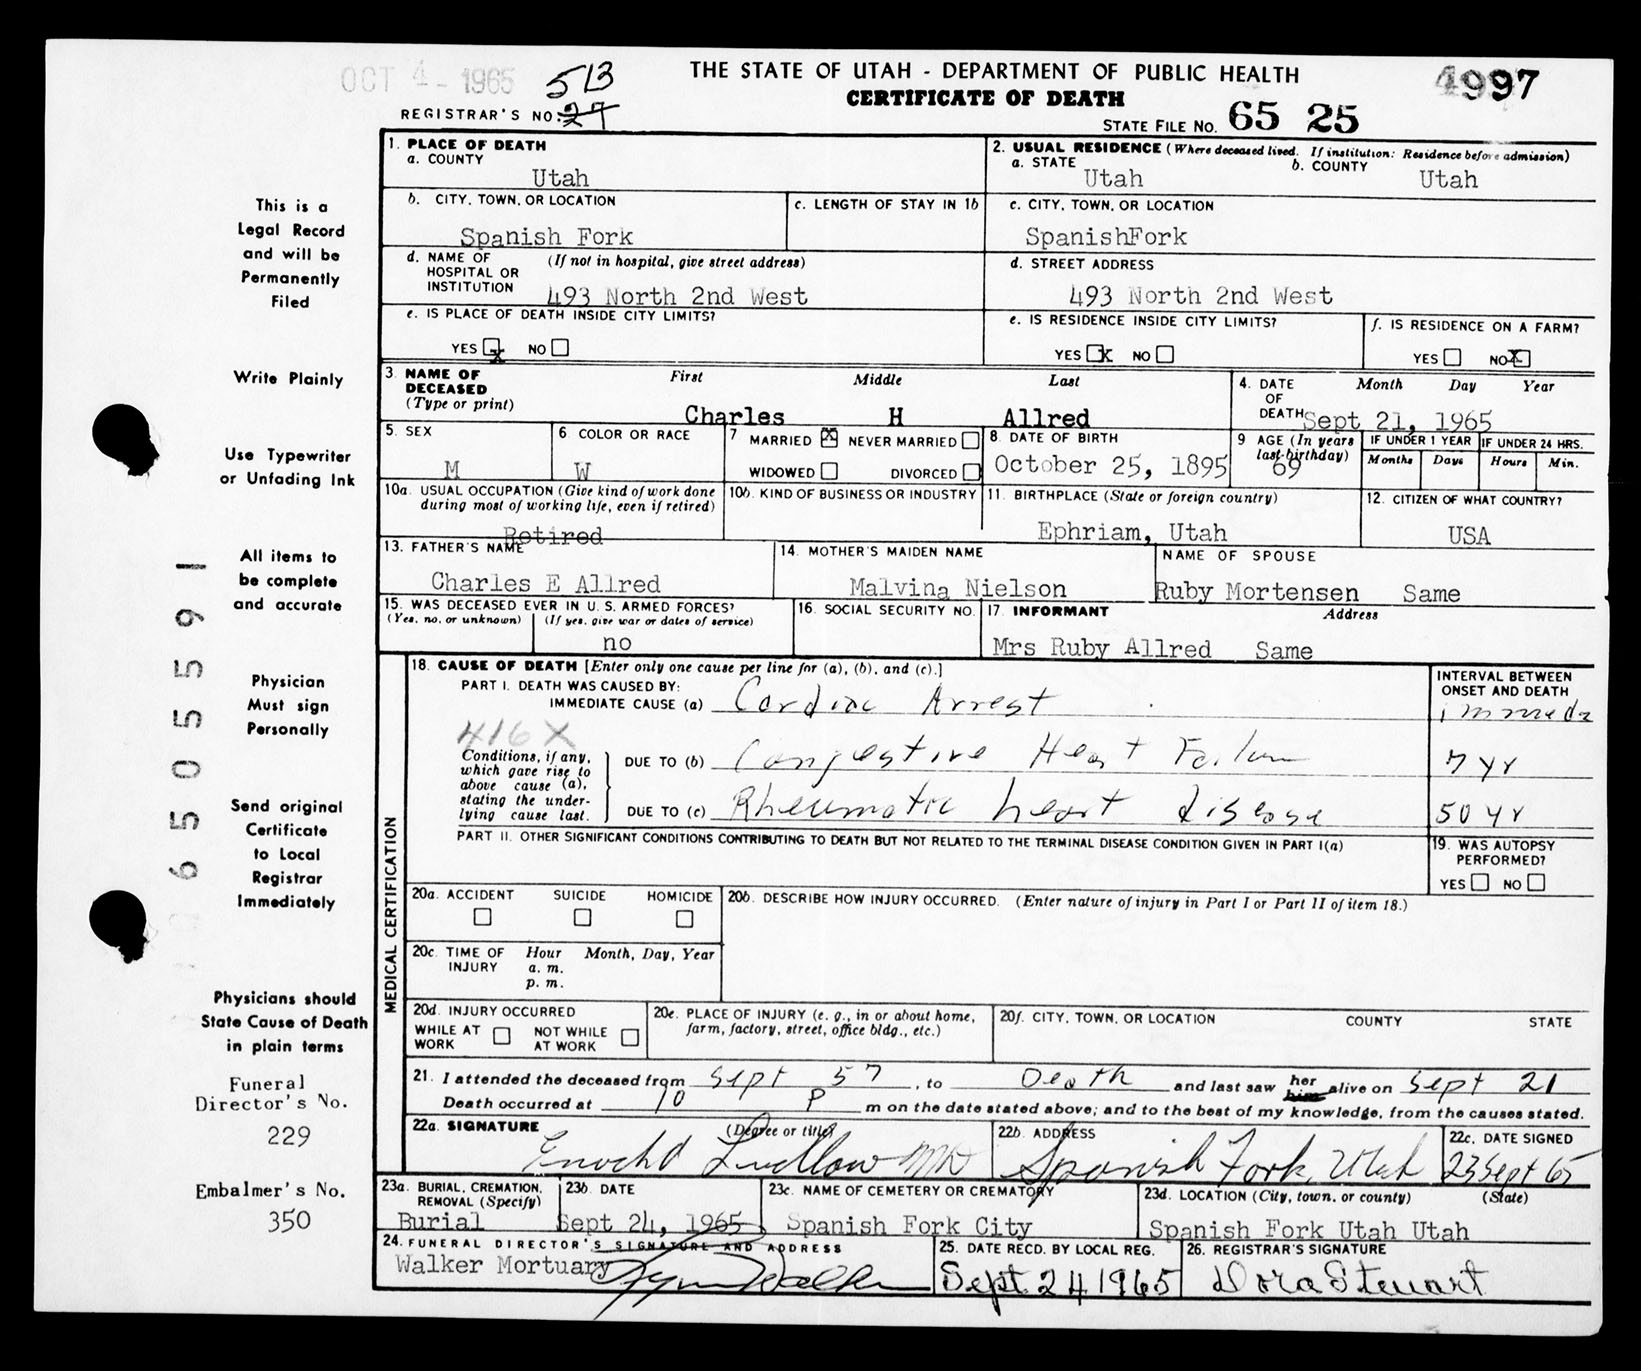 OCT 4 - 1965 513 THE STATE OF UTAH - DEPARTMENT OF PUBLIC HEALTH 4997
REGISTRAR'S NO. 27 CERTIFICATE OF DEATH STATE FILE No. 65 25
This is a
Legal Record
and will be
Permanently
Filed
Write Plainly
Use Typewriter
or Unfading Ink
All items to
be complete
and accurate
Physician
Must sign
Personally
Send original
Certificate
to Local
Registrar
Immediately
Physicians should
State Cause of Death
in plain terms
Funeral
Director's No.
229
Embalmer's No.
350
6 5 0 5 5 9 1
1. PLACE OF DEATH
a. COUNTY
Utah
2. USUAL RESIDENCE (Where deceased lived. If institution: Residence before admission)
a. STATE b. COUNTY
Utah Utah
b. CITY, TOWN, OR LOCATION
Spanish Fork
c. LENGTH OF STAY IN 1b
c. CITY, TOWN, OR LOCATION
SpanishFork
d. NAME OF (If not in hospital, give street address)
HOSPITAL OR
INSTITUTION 493 North 2nd West
d. STREET ADDRESS
493 North 2nd West
e. IS PLACE OF DEATH INSIDE CITY LIMITS?
YES X NO
e. IS RESIDENCE INSIDE CITY LIMITS?
YES X NO
f. IS RESIDENCE ON A FARM?
YES NO X
3. NAME OF DECEASED (Type or print) First Middle Last
Charles H Allred
4. DATE OF DEATH Month Day Year
Sept 21, 1965
5. SEX
M
6. COLOR OR RACE
W
7 MARRIED X NEVER MARRIED
WIDOWED DIVORCED
8. DATE OF BIRTH
October 25, 1895
9 AGE (In years last birthday)
69
IF UNDER 1 YEAR IF UNDER 24 HRS.
Months Days Hours Min.
10a. USUAL OCCUPATION (Give kind of work done
during most of working life, even if retired)
Retired
10b. KIND OF BUSINESS OR INDUSTRY
11. BIRTHPLACE (State or foreign country)
Ephriam, Utah
12. CITIZEN OF WHAT COUNTRY?
USA
13. FATHER'S NAME
Charles E Allred
14. MOTHER'S MAIDEN NAME
Malvina Nielson
NAME OF SPOUSE
Ruby Mortensen Same
15. WAS DECEASED EVER IN U. S. ARMED FORCES?
(Yes, no, or unknown) (If yes, give war or dates of service)
no
16. SOCIAL SECURITY NO.
17. INFORMANT Address
Mrs Ruby Allred Same
MEDICAL CERTIFICATION
18. CAUSE OF DEATH [Enter only one cause per line for (a), (b), and (c).]
PART I. DEATH WAS CAUSED BY:
IMMEDIATE CAUSE (a) Cardiac Arrest
INTERVAL BETWEEN
ONSET AND DEATH
416X
Conditions, if any,
which gave rise to
above cause (a),
stating the under-
lying cause last.
DUE TO (b) Congestive Heart Failure 7 yr
DUE TO (c) Rheumatic heart disease 50 yr
PART II. OTHER SIGNIFICANT CONDITIONS CONTRIBUTING TO DEATH BUT NOT RELATED TO THE TERMINAL DISEASE CONDITION GIVEN IN PART I(a)
19. WAS AUTOPSY
PERFORMED?
YES NO
20a. ACCIDENT SUICIDE HOMICIDE
20b. DESCRIBE HOW INJURY OCCURRED. (Enter nature of injury in Part I or Part II of item 18.)
20c. TIME OF INJURY Hour Month, Day, Year
a. m.
p. m.
20d. INJURY OCCURRED
WHILE AT WORK NOT WHILE AT WORK
20e. PLACE OF INJURY (e. g., in or about home,
farm, factory, street, office bldg., etc.)
20f. CITY, TOWN, OR LOCATION COUNTY STATE
21. I attended the deceased from Sept 57, to Death and last saw her him alive on Sept 21
Death occurred at 10 P m on the date stated above; and to the best of my knowledge, from the causes stated.
22a. SIGNATURE (Degree or title)
Enoch Ludlow MD
22b. ADDRESS
Spanish Fork, Utah
22c. DATE SIGNED
23 Sept 65
23a. BURIAL, CREMATION,
REMOVAL (Specify)
Burial
23b. DATE
Sept 24, 1965
23c. NAME OF CEMETERY OR CREMATORY
Spanish Fork City
23d. LOCATION (City, town, or county) (State)
Spanish Fork Utah Utah
24. FUNERAL DIRECTOR'S SIGNATURE AND ADDRESS
Walker Mortuary
25. DATE RECD. BY LOCAL REG.
Sept 24 1965
26. REGISTRAR'S SIGNATURE
Dora Stewart